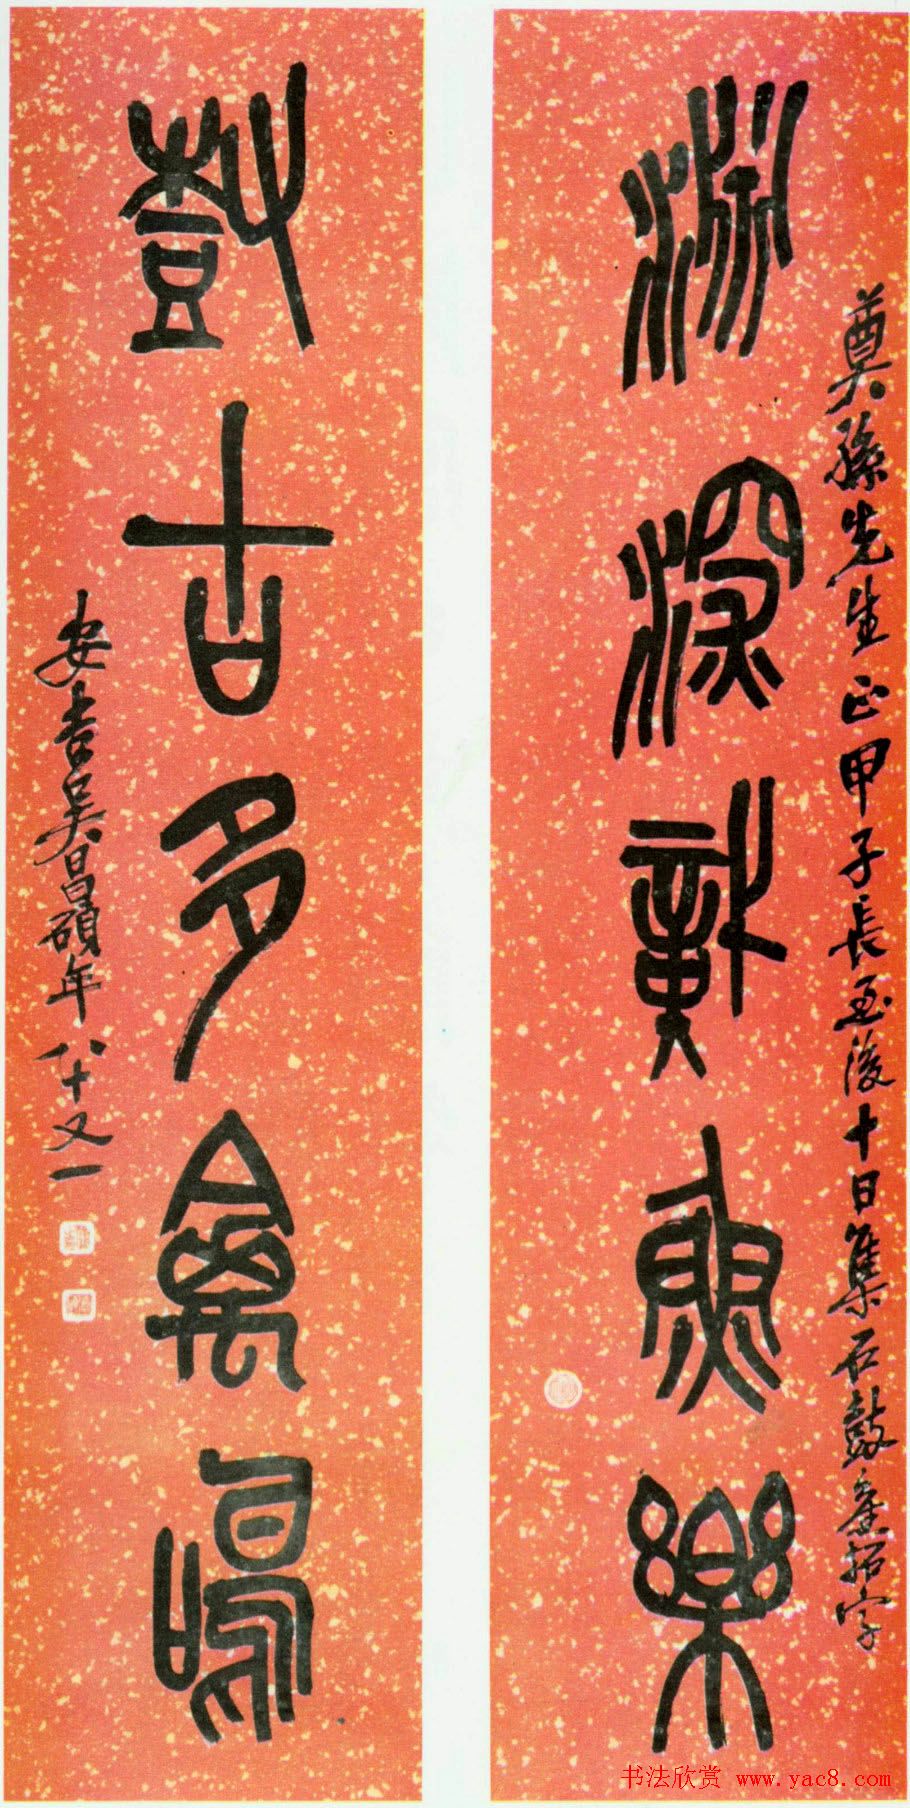 淵深識魚樂
奠孫先生正甲子長至後十日集石鼓拓字
樹古多禽鳴
安吉吳昌碩年八十又一
书法欣赏 www.yac8.com